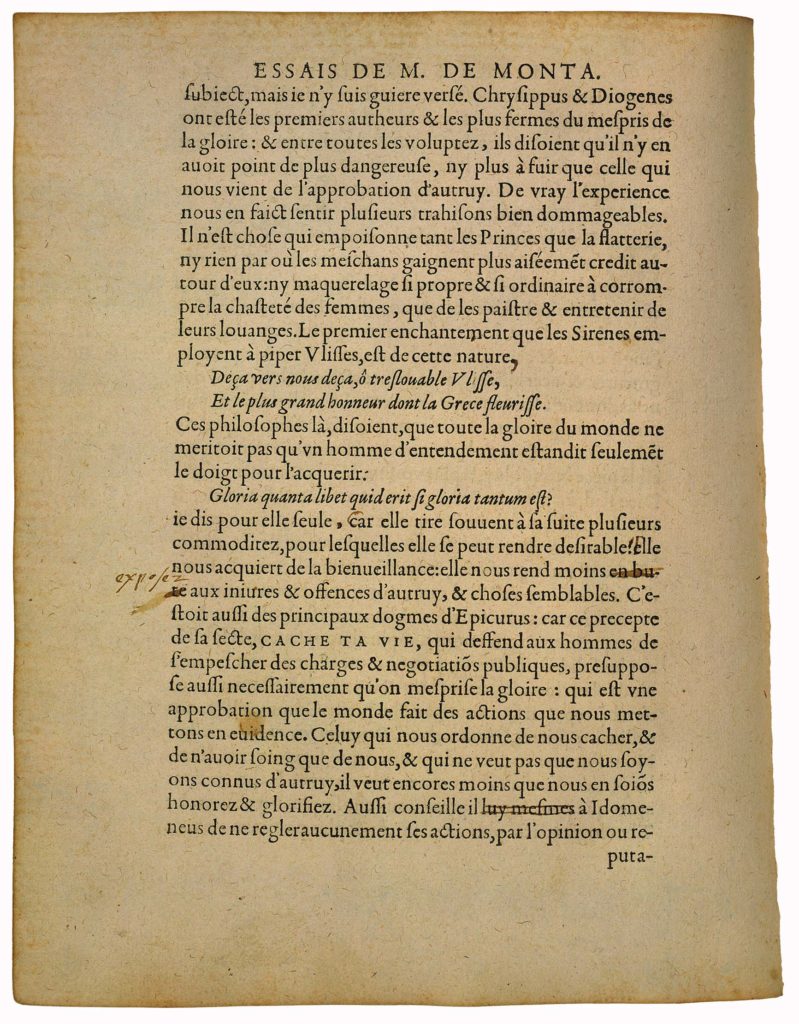 ESSAIS DE M. DE MONTA.
ſubiect, mais ie n'y ſuis guiere verſé. Chryſippus & Diogenes
ont eſté les premiers autheurs & les plus fermes du meſpris de
la gloire : & entre toutes les voluptez, ils diſoient qu'il n'y en
auoit point de plus dangereuſe, ny plus à fuir que celle qui
nous vient de l'approbation d'autruy. De vray l'experience
nous en faict ſentir pluſieurs trahiſons bien dommageables.
Il n'eſt choſe qui empoiſonne tant les Princes que la flatterie,
ny rien par où les meſchans gaignent plus aiſéemẽt credit au-
tour d'eux: ny maquerelage ſi propre & ſi ordinaire à corrom-
pre la chaſteté des femmes, que de les paiſtre & entretenir de
leurs louanges. Le premier enchantement que les Sirenes em-
ployent à piper Vliſſes, eſt de cette nature,
Deça vers nous deça, ô treſlouable Vliſſe,
Et le plus grand honneur dont la Grece fleuriſſe.
Ces philoſophes là, diſoient, que toute la gloire du monde ne
meritoit pas qu'vn homme d'entendement eſtandit ſeulemẽt
le doigt pour l'acquerir:
Gloria quanta libet quid erit ſi gloria tantum eſt?
ie dis pour elle ſeule, car elle tire ſouuent à ſa ſuite pluſieurs
commoditez, pour leſquelles elle ſe peut rendre deſirable: Elle
nous acquiert de la bienueillance: elle nous rend moins en bu-
expoſez
te aux iniures & offences d'autruy, & choſes ſemblables. C'e-
ſtoit auſſi des principaux dogmes d'Epicurus : car ce precepte
de ſa ſecte, CACHE TA VIE, qui deffend aux hommes de
s'empeſcher des charges & negotiatiõs publiques, preſuppo-
ſe auſſi neceſſairement qu'on meſpriſe la gloire : qui eſt vne
approbation que le monde fait des actions que nous met-
tons en euidence. Celuy qui nous ordonne de nous cacher, &
de n'auoir ſoing que de nous, & qui ne veut pas que nous ſoy-
ons connus d'autruy, il veut encores moins que nous en ſoiõs
honorez & glorifiez. Auſſi conſeille il luy meſmes à Idome-
neus de ne regler aucunement ſes actions, par l'opinion ou re-
puta-